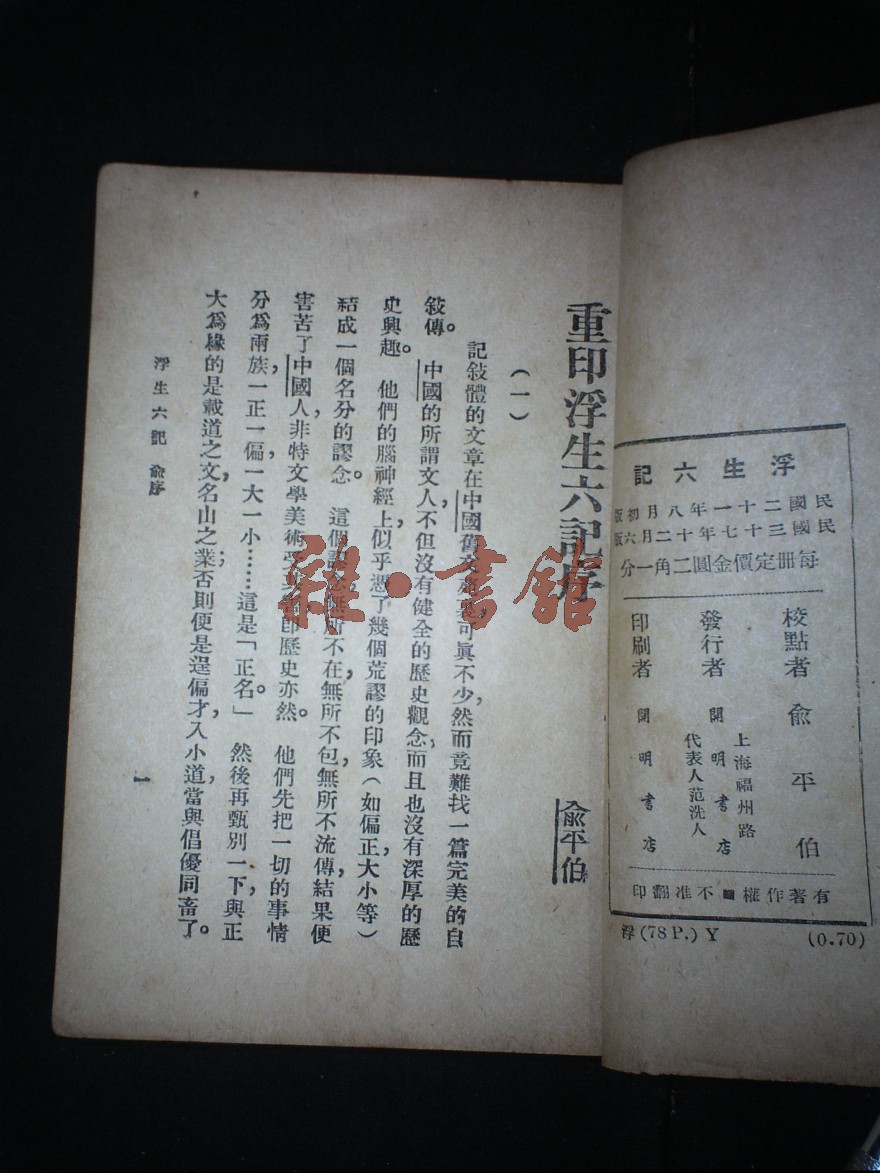 浮生六記
民國二十一年八月初版
民國三十七年十二月六版
每冊定價金圓二角一分
校點者 俞平伯
上海福州路
發行者 開明書店
代表人范洗人
印刷者 開明書店
有著作權■不准翻印
浮(78P.)Y (0.70)
重印浮生六記序
俞平伯
(一)
記敍體的文章在中國舊文裏可眞不少,然而竟難找一篇完美的自
敍傳。 中國的所謂文人,不但沒有健全的歷史觀念,而且也沒有深厚的歷
史興趣。 他們的腦神經上,似乎憑了幾個荒謬的印象(如偏正大小等)
結成一個名分的謬念。 這個謬念無所不在,無所不包,無所不流傳,結果便
害苦了中國人,非特文學美術受其害,卽歷史亦然。 他們先把一切的事情
分爲兩族,一正一偏,一大一小……這是「正名。」 然後再甄別一下,與正
大爲緣的是載道之文,名山之業;否則便是逞偏才,入小道,當與倡優同畜了。
浮生六記 俞序
一
雜·書館